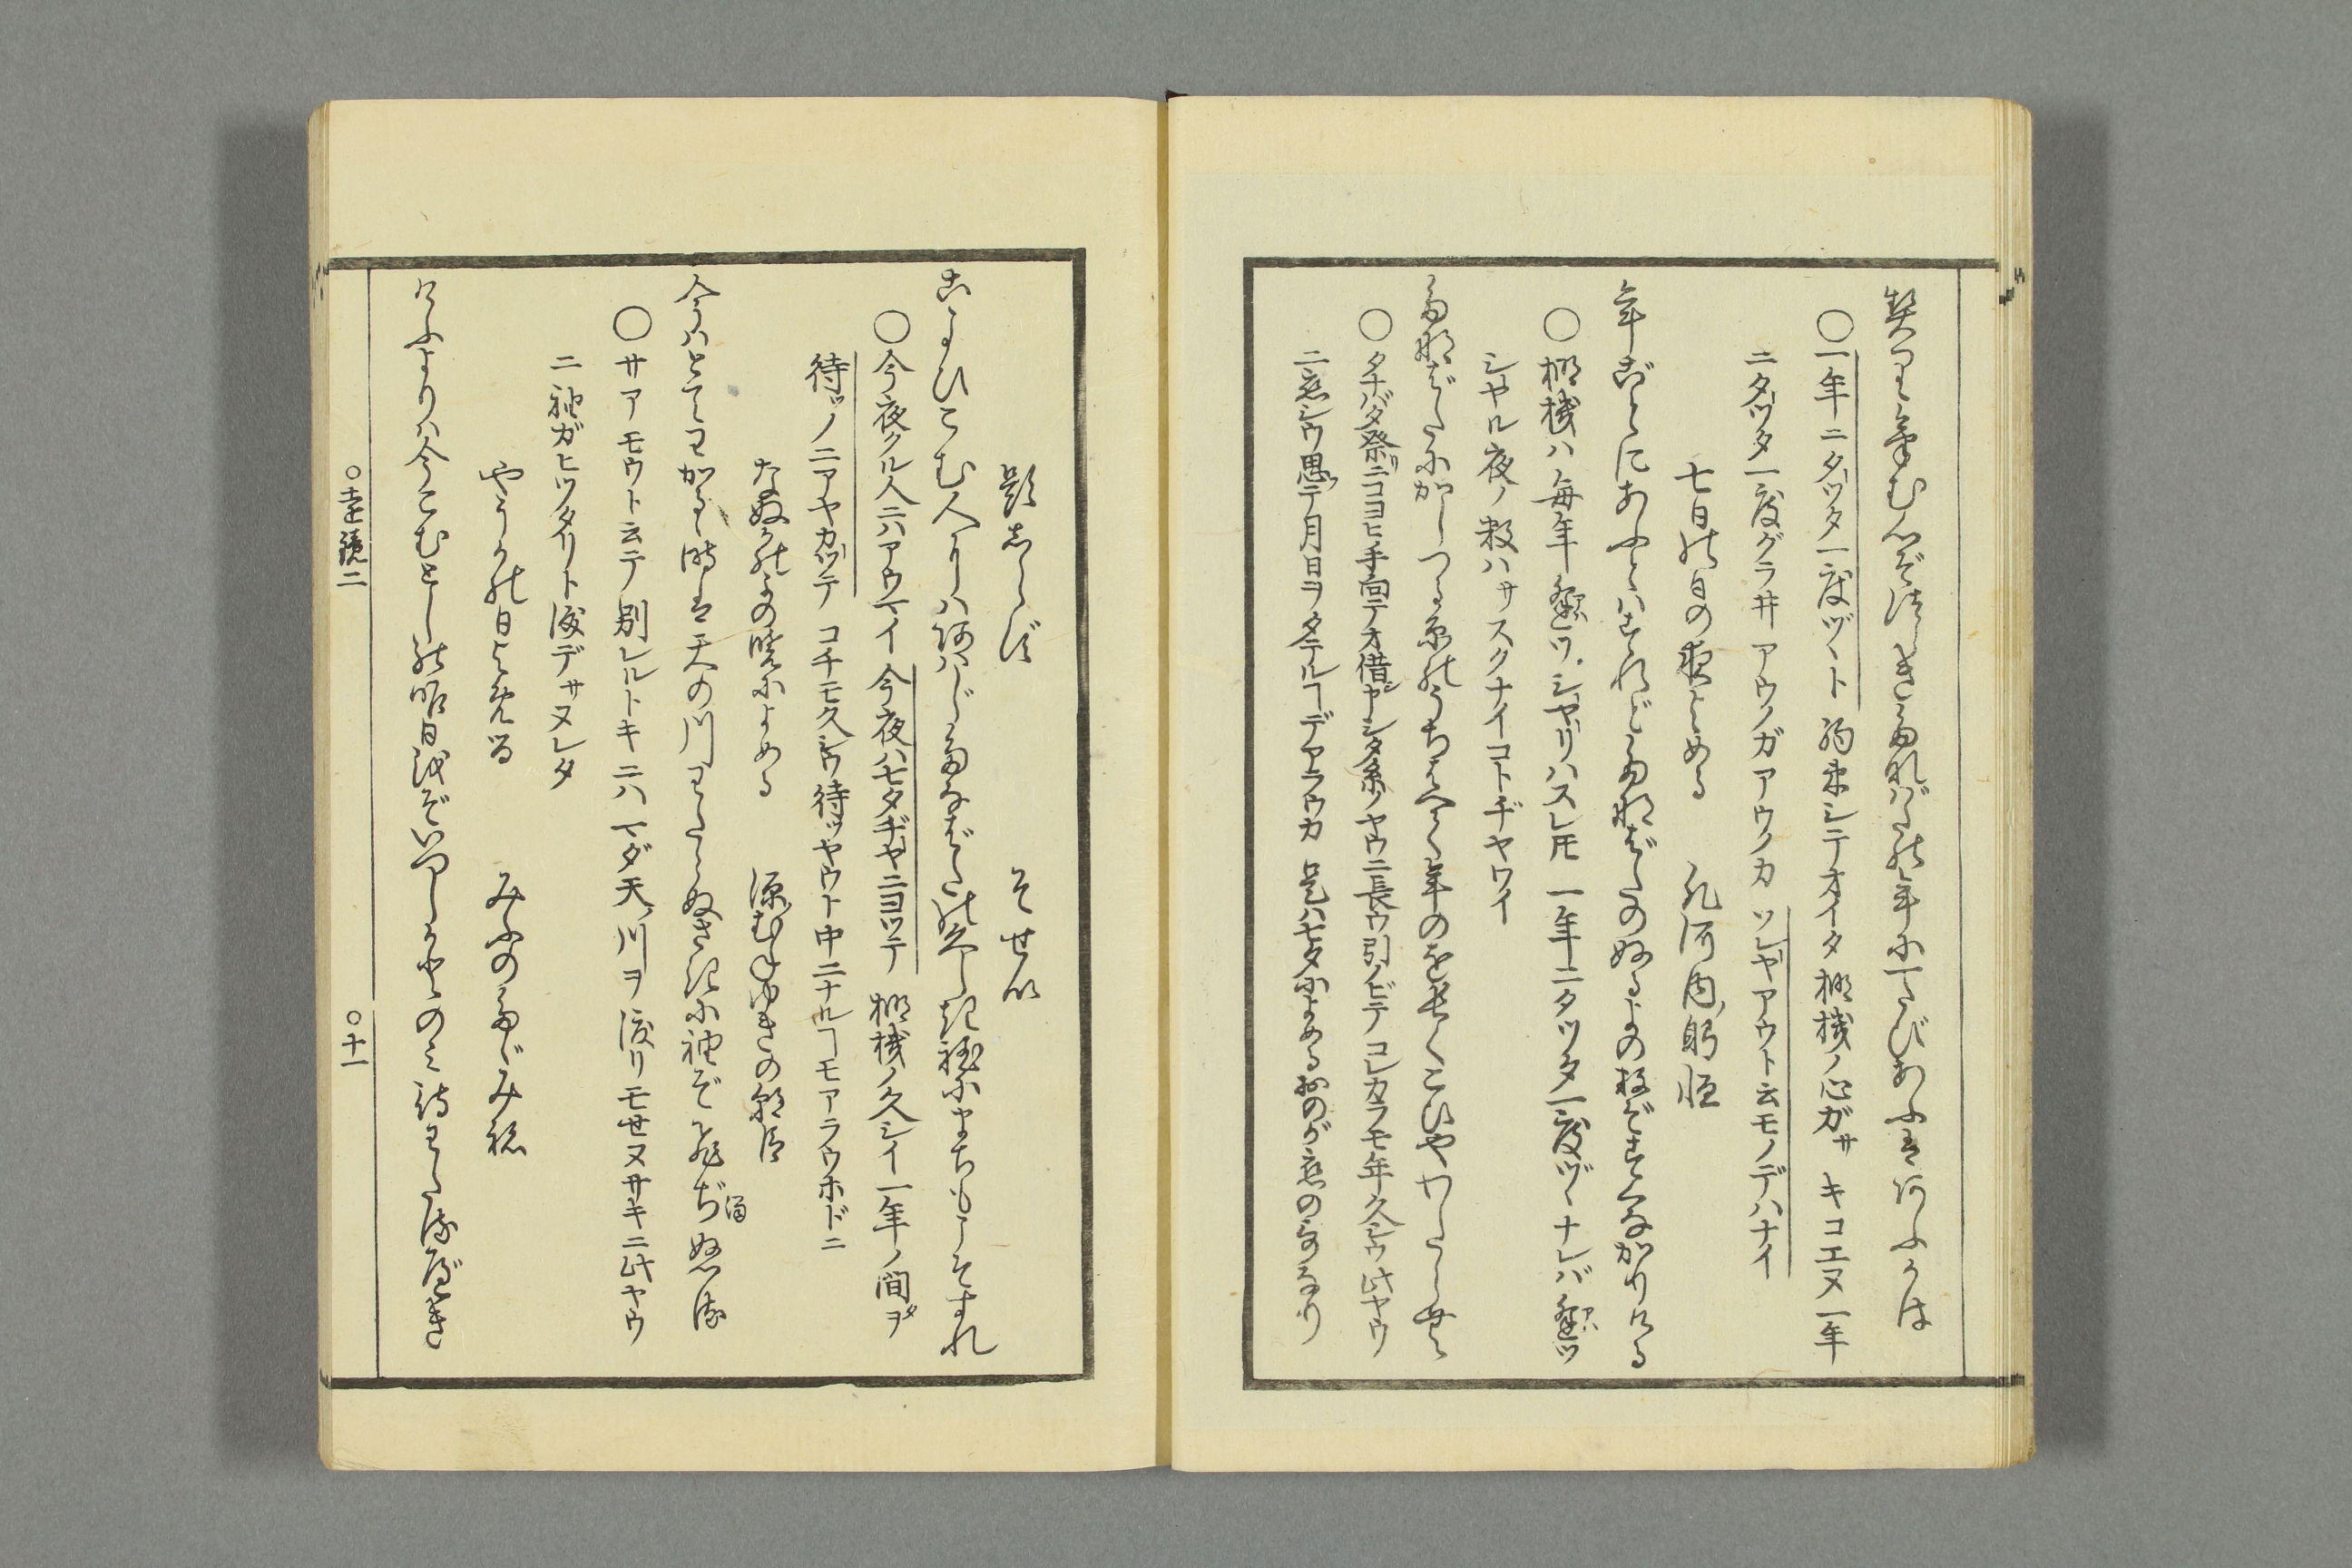 契りけむ心ぞつらきたなばたの年にひとたびあふはあふかは
○一年ニタツタ一度ヅヽト約束シテオイタ棚機ノ心ガサ キコエヌ一年
ニタツタ一度グラヰアウノガアウノカ ソレヤアウト云モノデハナイ
七日の日の夜よめる　凡河内躬恒
年ごとにあふとはすれどたなばたのぬるよの数ぞすくなかりける
○棚機ハ毎年逢ツシヤリハスレ𪜈一年ニタツタ一度ヅヽナレバ逢ツ
シヤル夜ノ数ハサスクナイコトヂヤワイ
たなばたにかしつる糸のうちはへて年のをながくこひやわたらむ
○タナバタ祭リニコヨヒ手向テオ借ヤシタ糸ノヤウニ長ウ引ノビテコレカラモ年久シウ此ヤウ
ニ恋シウ思テ月日ヲタテルヿデヤラウカ 是ハ七夕によめるおのが恋のうたなり
題しらず　そせい
こよひこむ人にはあはじたなばたの久しきほどにまちもこそすれ
○今夜クル人ニハアウマイ 今夜ハ七夕ヂヤニヨツテ 棚機ノ久シイ一年ノ間ダヲ
待ツノニアヤカツテ コチモ久シウ待ツヤウト中ニナルヿモアラウホドニ
なぬかの夜の暁によめる　源むねゆきの朝臣
今はとてわかるゝ時は天の川わたらぬさきに袖ぞひぢぬる
○サアモウト云テ別レルトキニハマダ天ノ川ヲ渡リモセヌサキニ此ヤウ
ニ袖ガヒツタリト涙デサヌレタ
やうかの日よめる　みぶのたゞみね
けふよりは今こむとしの昨日をぞいつしかとのみ待わたるべき
○遠鏡二　○十一